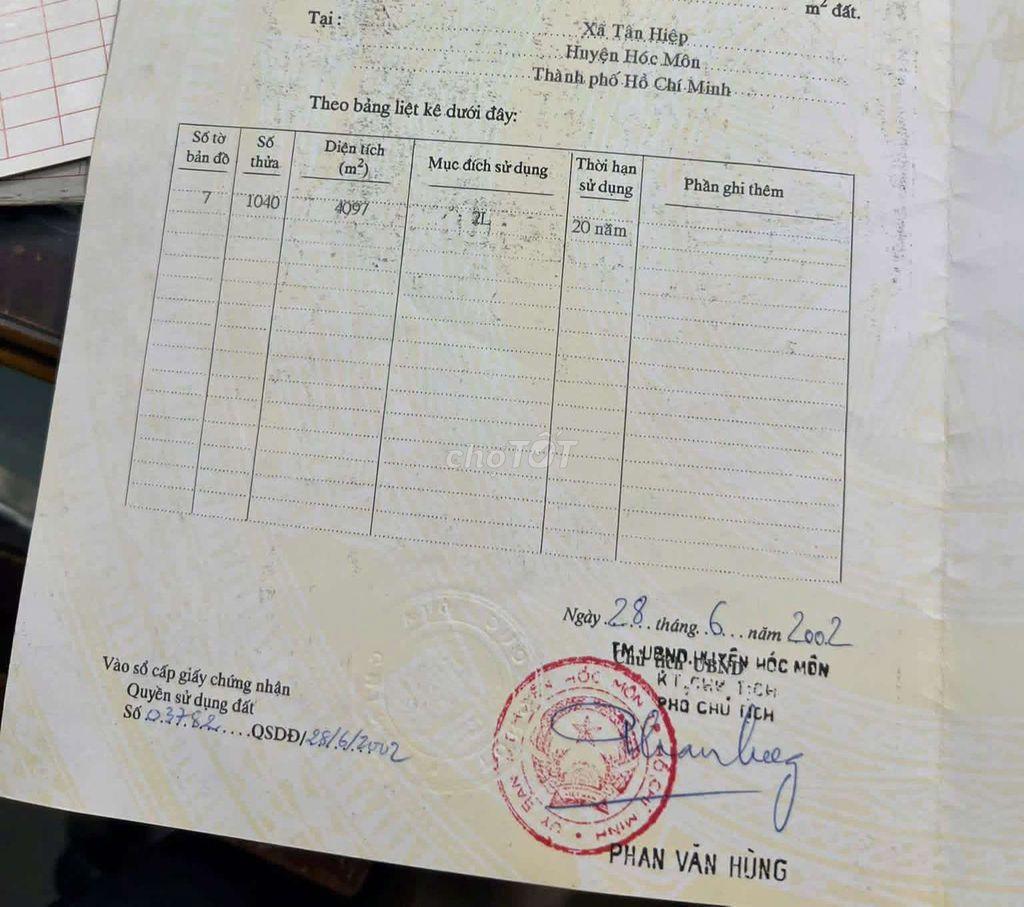 m² đất.
Tại :
Xã Tân Hiệp
Huyện Hóc Môn
Thành phố Hồ Chí Minh
Theo bảng liệt kê dưới đây:
Số tờ bản đồ
Số thửa
Diện tích (m²)
Mục đích sử dụng
Thời hạn sử dụng
Phần ghi thêm
7 1040 4097 2L 20 năm
chợTỐT
Ngày 28 tháng 6 năm 2002
TM.UBND.HUYỆN HÓC MÔN
Chủ tịch UBND
KT.CHỦ TỊCH
PHÓ CHỦ TỊCH
Vào sổ cấp giấy chứng nhận
Quyền sử dụng đất
Số 03782 QSDĐ/28/6/2002
PHAN VĂN HÙNG